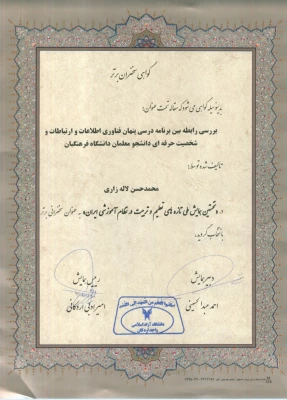 گواهی سخنران برتر
بدینوسیله گواهی می شود که مقاله تحت عنوان:
بررسی رابطه بین برنامه درسی پنهان فناوری اطلاعات و ارتباطات و
شخصیت حرفه ای دانشجو معلمان دانشگاه فرهنگیان
تالیف شده توسط:
محمدحسن لاله زاری
در «نخستین همایش ملی تازه های تعلیم و تربیت در نظام آموزشی ایران» به عنوان سخنرانی برتر
انتخاب گردید.
دبیر همایش
رییس همایش
احمد عبدالحسینی
امیر ادبی اردکانی
دانشگاه آزاد اسلامی
واحد اردکان